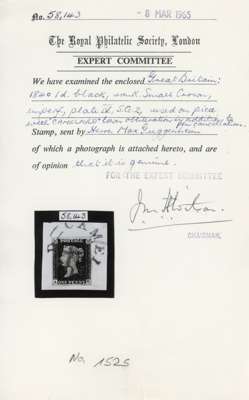 No. 58,143 - 8 MAR 1965
The Royal Philatelic Society, London
EXPERT COMMITTEE
We have examined the enclosed Great Britain:
1840 1d. black, wmk Small Crown,
imperf, plate II, S.G. 2, used on piece
with town obliteration in addition to
pen cancellation.
Stamp, sent by Herr Max Guggenheim
of which a photograph is attached hereto, and are
of opinion that it is genuine.
FOR THE EXPERT COMMITTEE
CHAIRMAN
58,143
POSTAGE
ONE PENNY
No. 1525